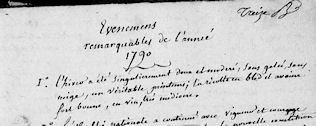 Treize
Evenemens
remarquables de l'année
1790
1º. l'hiver a été singulierement doux et moderé, sans gelée, sans
neige, un véritable printems; la récolte en bled et avoine
fort bonne, en vin, très médiocre.
nationale a continué avec vigueur et courage
nouvelle constitution